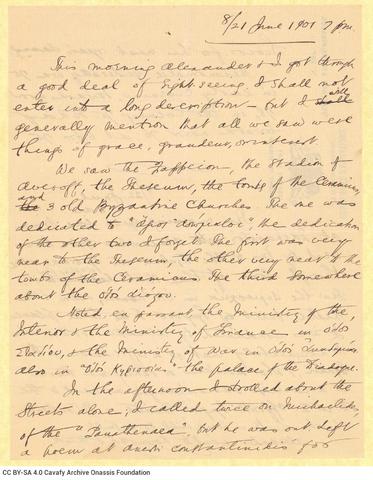 8/21 June 1901 7 p.m.
This morning Alexander & I got through
a good deal of sight-seeing. I shall not
enter into a long description – but I shall will
generally mention that all we saw were
things of grace, grandeur, or interest
We saw the Zappeion, the Stadium of
Averoff, the Theseum, the tombs of the Ceramicus,
the and 3 old Byzantine Churches. The one was
dedicated to the dedication
of the other two I forget. The first was very
near to the Theseum, the other very near to the
tombs of the Ceramicus. The third somewhere
about the
Noted, en passant, the Ministry of the
Interior & the Ministry of Finance in ὁδός
Σταδίου, & the Ministry of War in ὁδός
also in the palace of the Διαδόχου.
In the afternoon I strolled about the
Streets alone; I called twice on Michaelides,
of the "Panathenaea", but he was out. Left
a poem at Anesti Constantinidis' for
CC BY-SA 4.0 Cavafy Archive Onassis Foundation